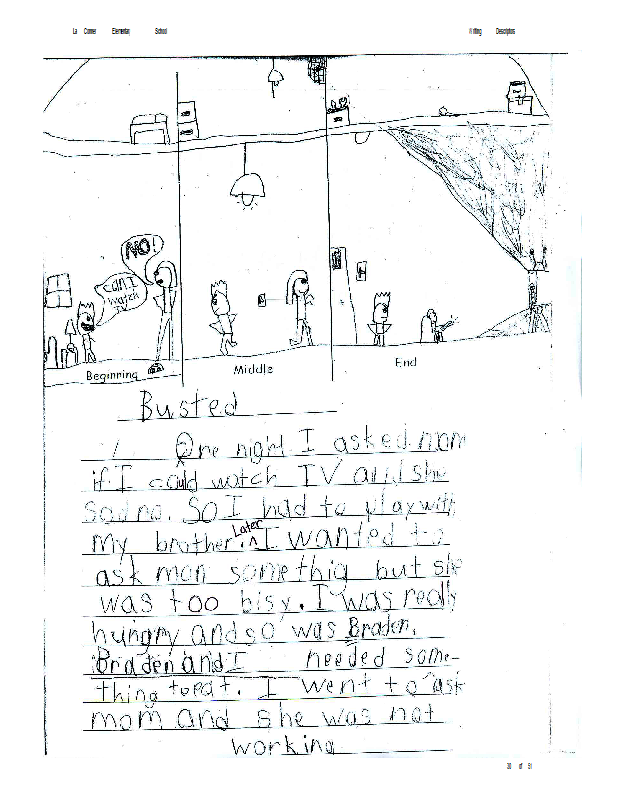 La Conner Elementary School Writing Descriptors
NO!
can I
watch
Beginning
Middle
End
Busted
One night I asked mom
if I could watch TV and she
sad no. So I had to play with
my brother. Later I wanted to
ask mom somethig but she
was too bisy. I was really
hungry and so was Braden.
Braden and I needed some-
thing to eat. I went to ask
mom and she was not
working
30 of 91